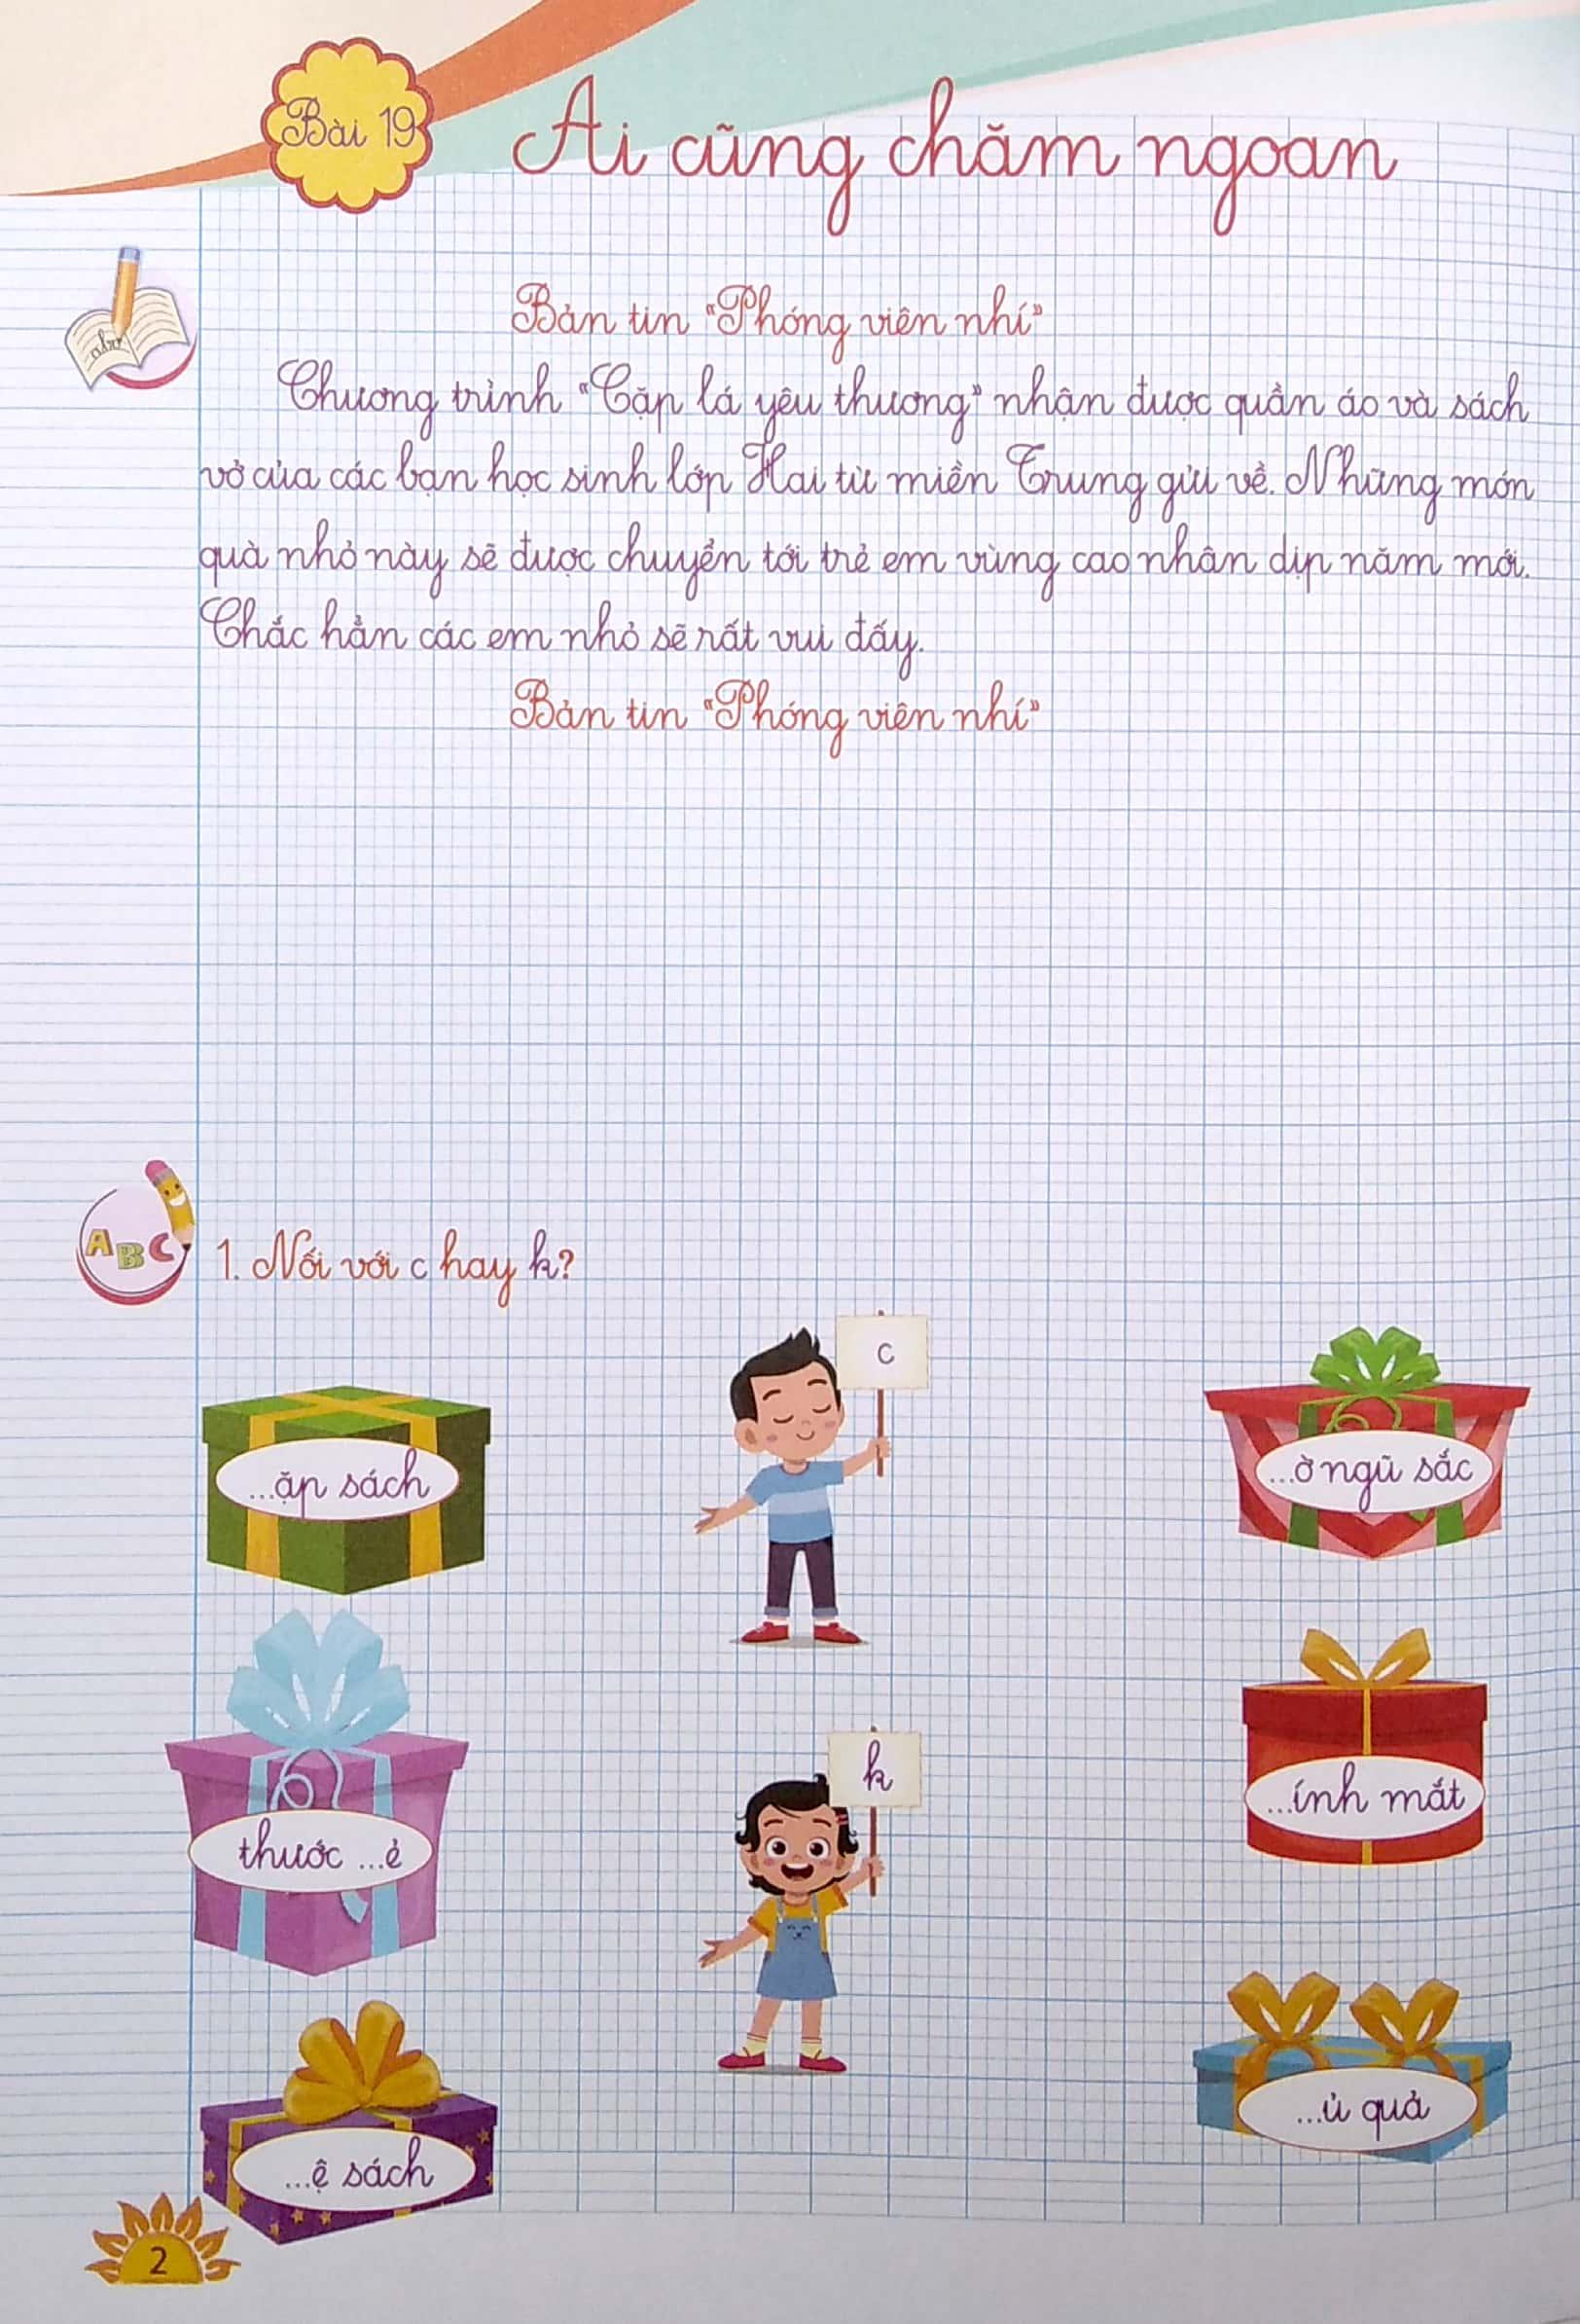 Bài 19
Ai cũng chăm ngoan
Bản tin “Phóng viên nhí”
Chương trình “Cặp lá yêu thương” nhận được quần áo và sách
vở của các bạn học sinh lớp Hai từ miền Trung gửi về. Những món
quà nhỏ này sẽ được chuyển tới trẻ em vùng cao nhân dịp năm mới.
Chắc hẳn các em nhỏ sẽ rất vui đấy.
Bản tin “Phóng viên nhí”
ABC
1. Nối với c hay k?
c
...ặp sách
...ờ ngũ sắc
k
thước ...ẻ
...ính mắt
...ệ sách
...ủ quả
2